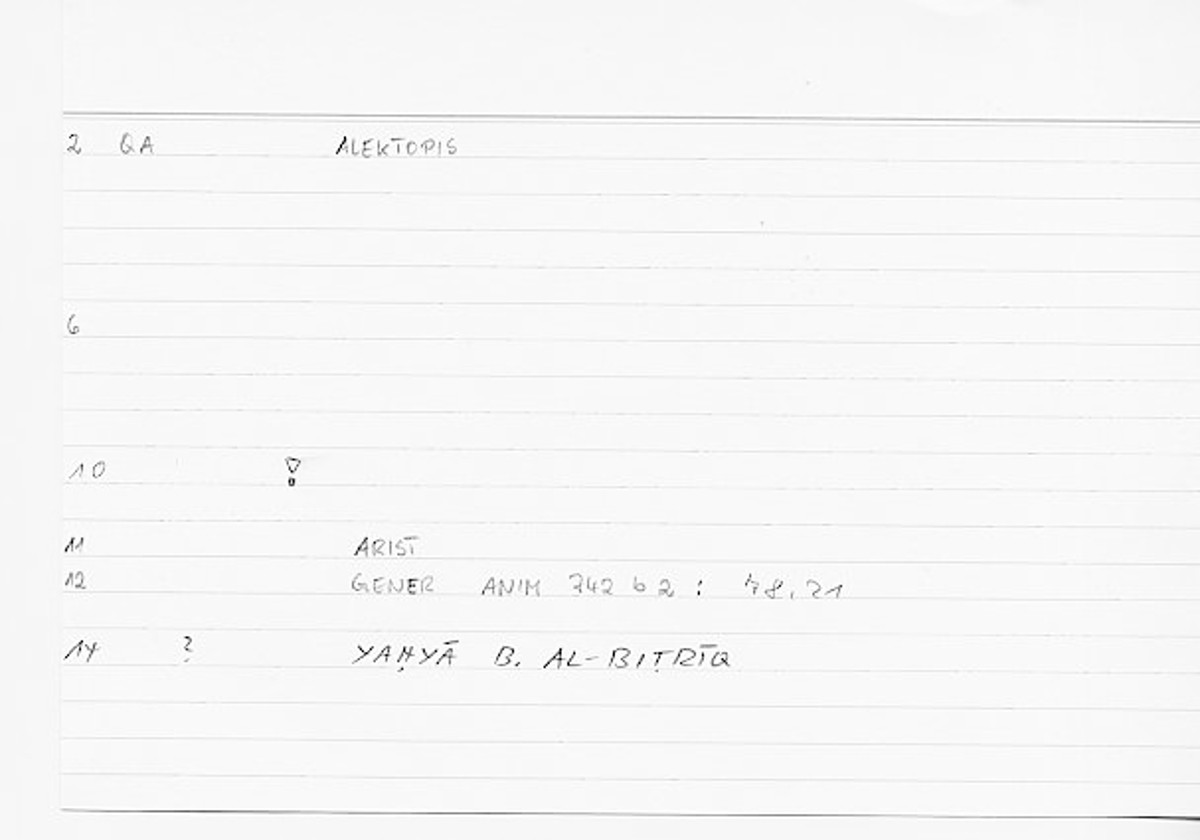 2 QA ALEKTOPIS
6
10 !
11 ARIST
12 GENER ANIM 742 b 2 : 78.21
14 ? YAḤYĀ B. AL-BIṬRĪQ